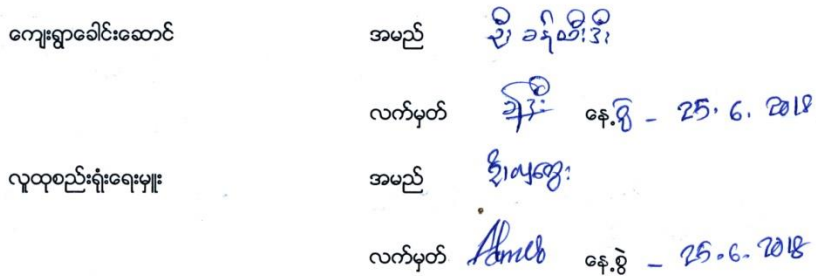 ကျေးရွာခေါင်းဆောင် အမည် ဦး ခန်ထီးဒီး
လက်မှတ် နေ့စွဲ - 25.6.2018
လူထုစည်းရုံးရေးမှူး အမည်
လက်မှတ် နေ့စွဲ - 25.6.2018